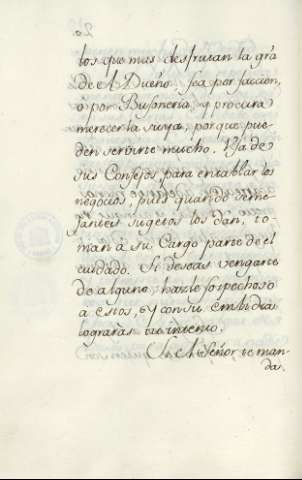 20
los que mas desfrutan la gra
de A Dueño. Sea por faccion,
o por Bufoneria, y procura
merecer la suya, porque pue-
den servirte mucho. Usa de
sus Consejos para entablar los
negocios, pues quando seme-
jantes sugetos los dan, to-
man à su Cargo parte de el
cuidado. Si deseas vengarte
de alguno, hazle sospechoso
a estos, y con su embidia
lograràs tu intento.
Si A Señor te man-
da.